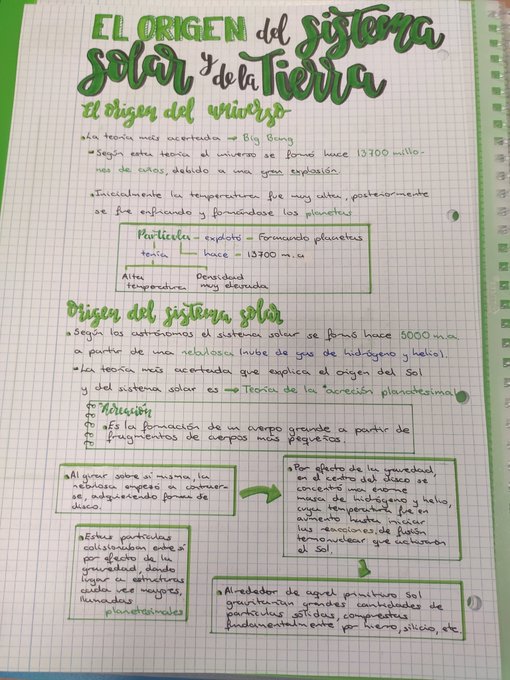 EL ORIGEN del sistema
solar y de la Tierra
El origen del universo
La teoría más acertada → Big Bang
Según esta teoría el universo se formó hace 13700 millo-
nes de años, debido a una gran explosión.
Inicialmente la temperatura fue muy alta, posteriormente
se fue enfriando y formándose los planetas
Partícula - explotó - Formando planetas
tenía hace - 13700 m.a
Alta Densidad
temperatura muy elevada
Origen del sistema solar
Según los astrónomos el sistema solar se formó hace 5000 m.a.
a partir de una nebulosa (nube de gas de hidrógeno y helio).
La teoría más acertada que explica el origen del Sol
y del sistema solar es → Teoría de la "acreción planetesimal
Acreación
Es la formación de un cuerpo grande a partir de
fragmentos de cuerpos más pequeños.
Al girar sobre sí misma, la
nebulosa empezó a contraer-
se, adquiriendo forma de
disco.
Por efecto de la gravedad,
en el centro del disco se
concentró una enorme
masa de hidrógeno y helio,
cuya temperatura fue en
aumento hasta iniciar
las reacciones de fusión
termonuclear que activaron
el Sol.
Estas partículas
colisionaban entre sí
por efecto de la
gravedad, dando
lugar a estructuras
cada vez mayores,
llamadas
planetesimales
Alrededor de aquel primitivo Sol
gravitarían grandes cantidades de
partículas sólidas, compuestas
fundamentalmente por hierro, silicio, etc.